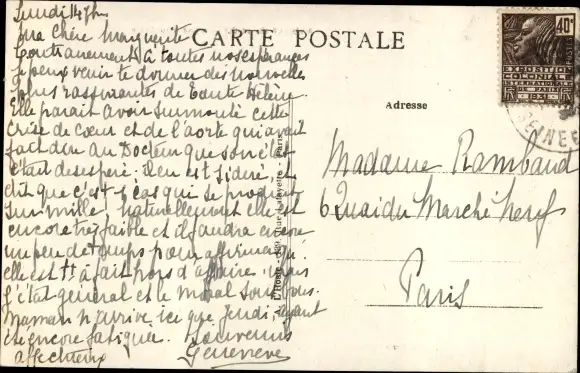 Lundi 14 7h
CARTE POSTALE
Ma chère Marguerite
Contrairement à toutes nos espérances
je peux venir te donner des nouvelles
plus rassurantes de Tante Hélène.
Elle paraît avoir surmonté cette
crise de cœur et de l'aorte qui avait
fait dire au Docteur que son état
était désespéré; il en est sidéré, et
dit que c'est 1 cas qui se produit
sur mille. Naturellement elle est
encore très faible et il faudra encore
un peu de temps pour affirmer qu'
elle est tt à fait hors d'affaire, mais
l'état général et le moral sont bons.
Maman n'arrive ici que jeudi, ayant
été encore fatiguée. Souvenirs
affectueux
Geneviève
Adresse
Madame Rambaud
6 Quai du Marché Neuf
Paris
40c
EXPOSITION
COLONIALE
INTERNATIONALE
DE PARIS
1931
SEINE